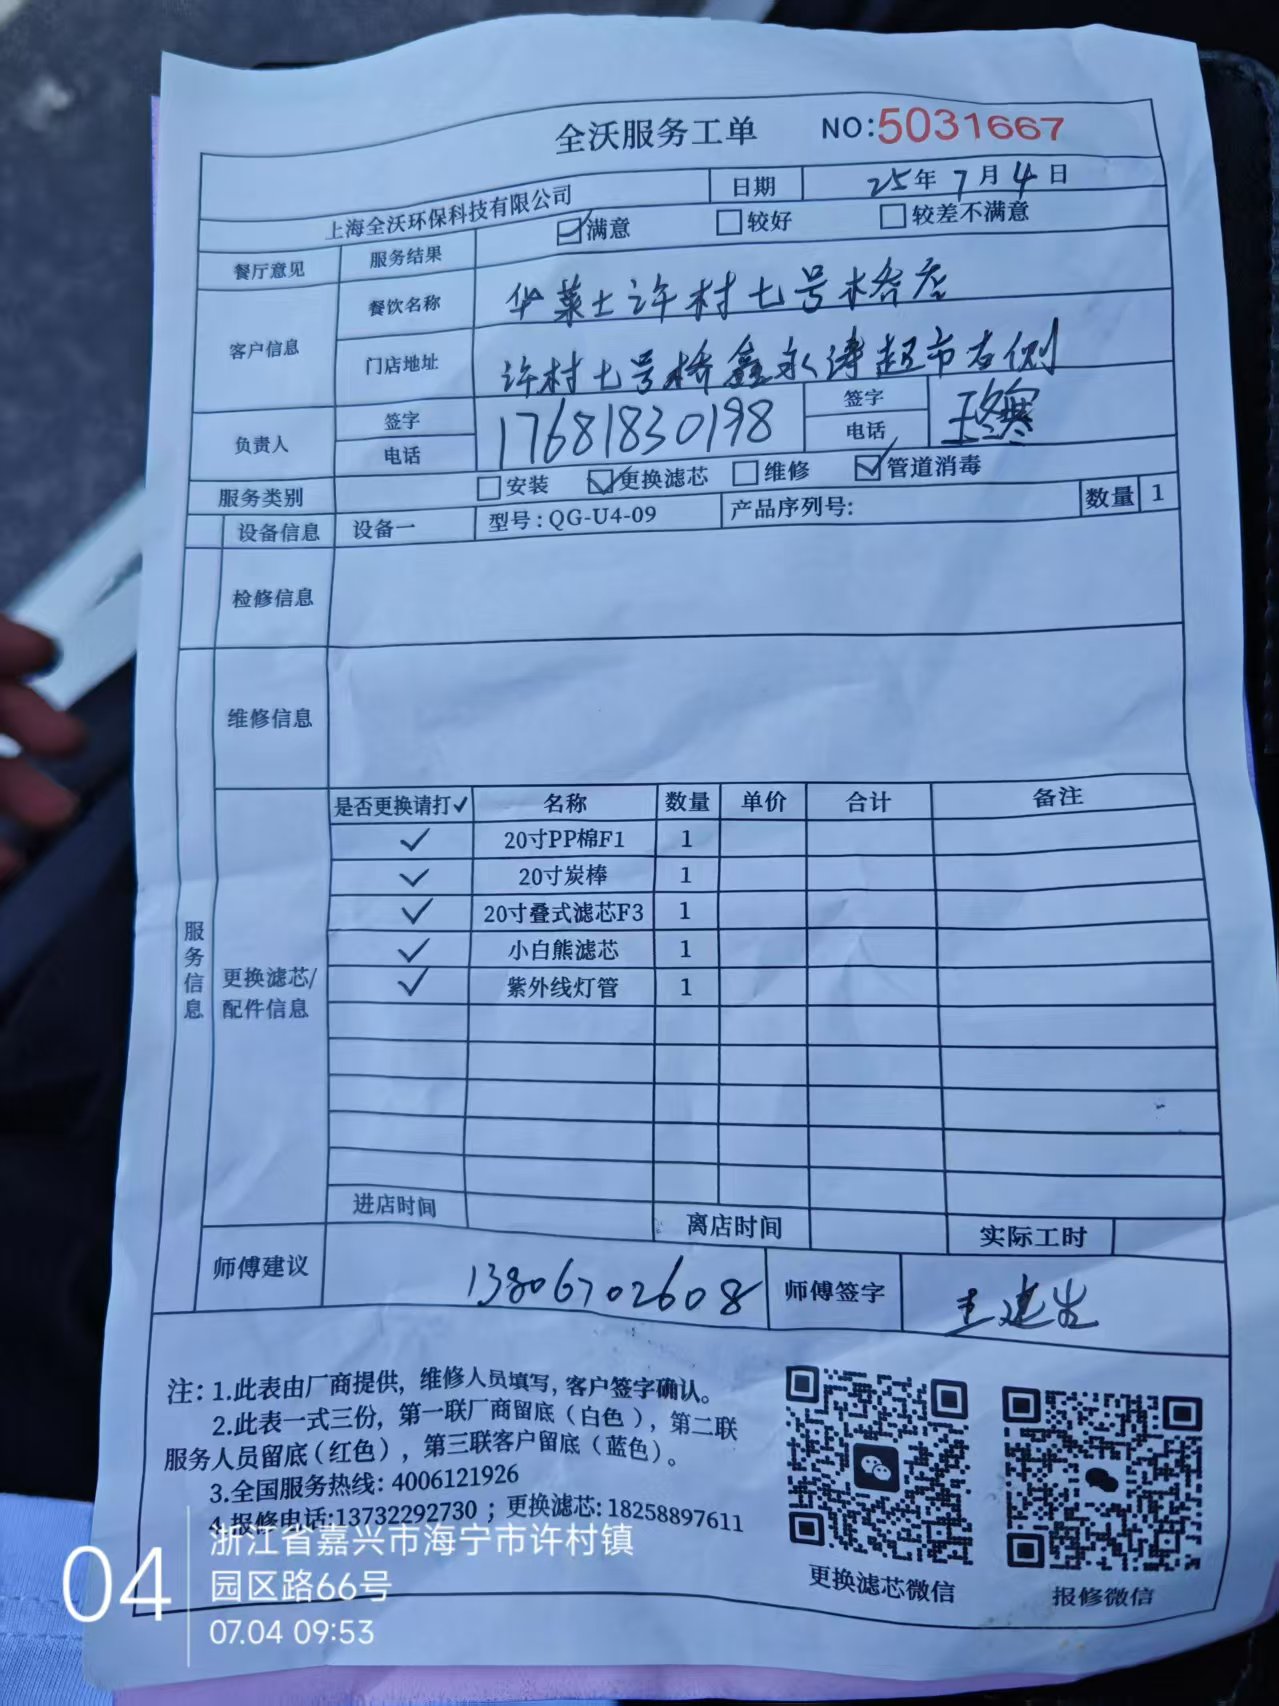 全沃服务工单 NO:5031667
上海全沃环保科技有限公司 日期 25年7月4日
餐厅意见 服务结果 满意 较好 较差不满意
客户信息 餐饮名称 华莱士许村七号桥店
门店地址 许村七号桥鑫永涛超市右侧
负责人 签字 电话 17681830198 签字 电话
服务类别 安装 更换滤芯 维修 管道消毒
设备信息 设备一 型号:QG-U4-09 产品序列号: 数量 1
检修信息
维修信息
服务信息
更换滤芯/
配件信息
是否更换请打✓ 名称 数量 单价 合计 备注
✓ 20寸PP棉F1 1
✓ 20寸炭棒 1
✓ 20寸叠式滤芯F3 1
✓ 小白熊滤芯 1
✓ 紫外线灯管 1
进店时间 离店时间 实际工时
师傅建议 13806702608 师傅签字
注:1.此表由厂商提供, 维修人员填写, 客户签字确认。
2.此表一式三份, 第一联厂商留底(白色), 第二联
服务人员留底(红色), 第三联客户留底(蓝色)。
3.全国服务热线: 4006121926
4.报修电话:13732292730 ; 更换滤芯: 18258897611
更换滤芯微信 报修微信
04
浙江省嘉兴市海宁市许村镇
园区路66号
07.04 09:53